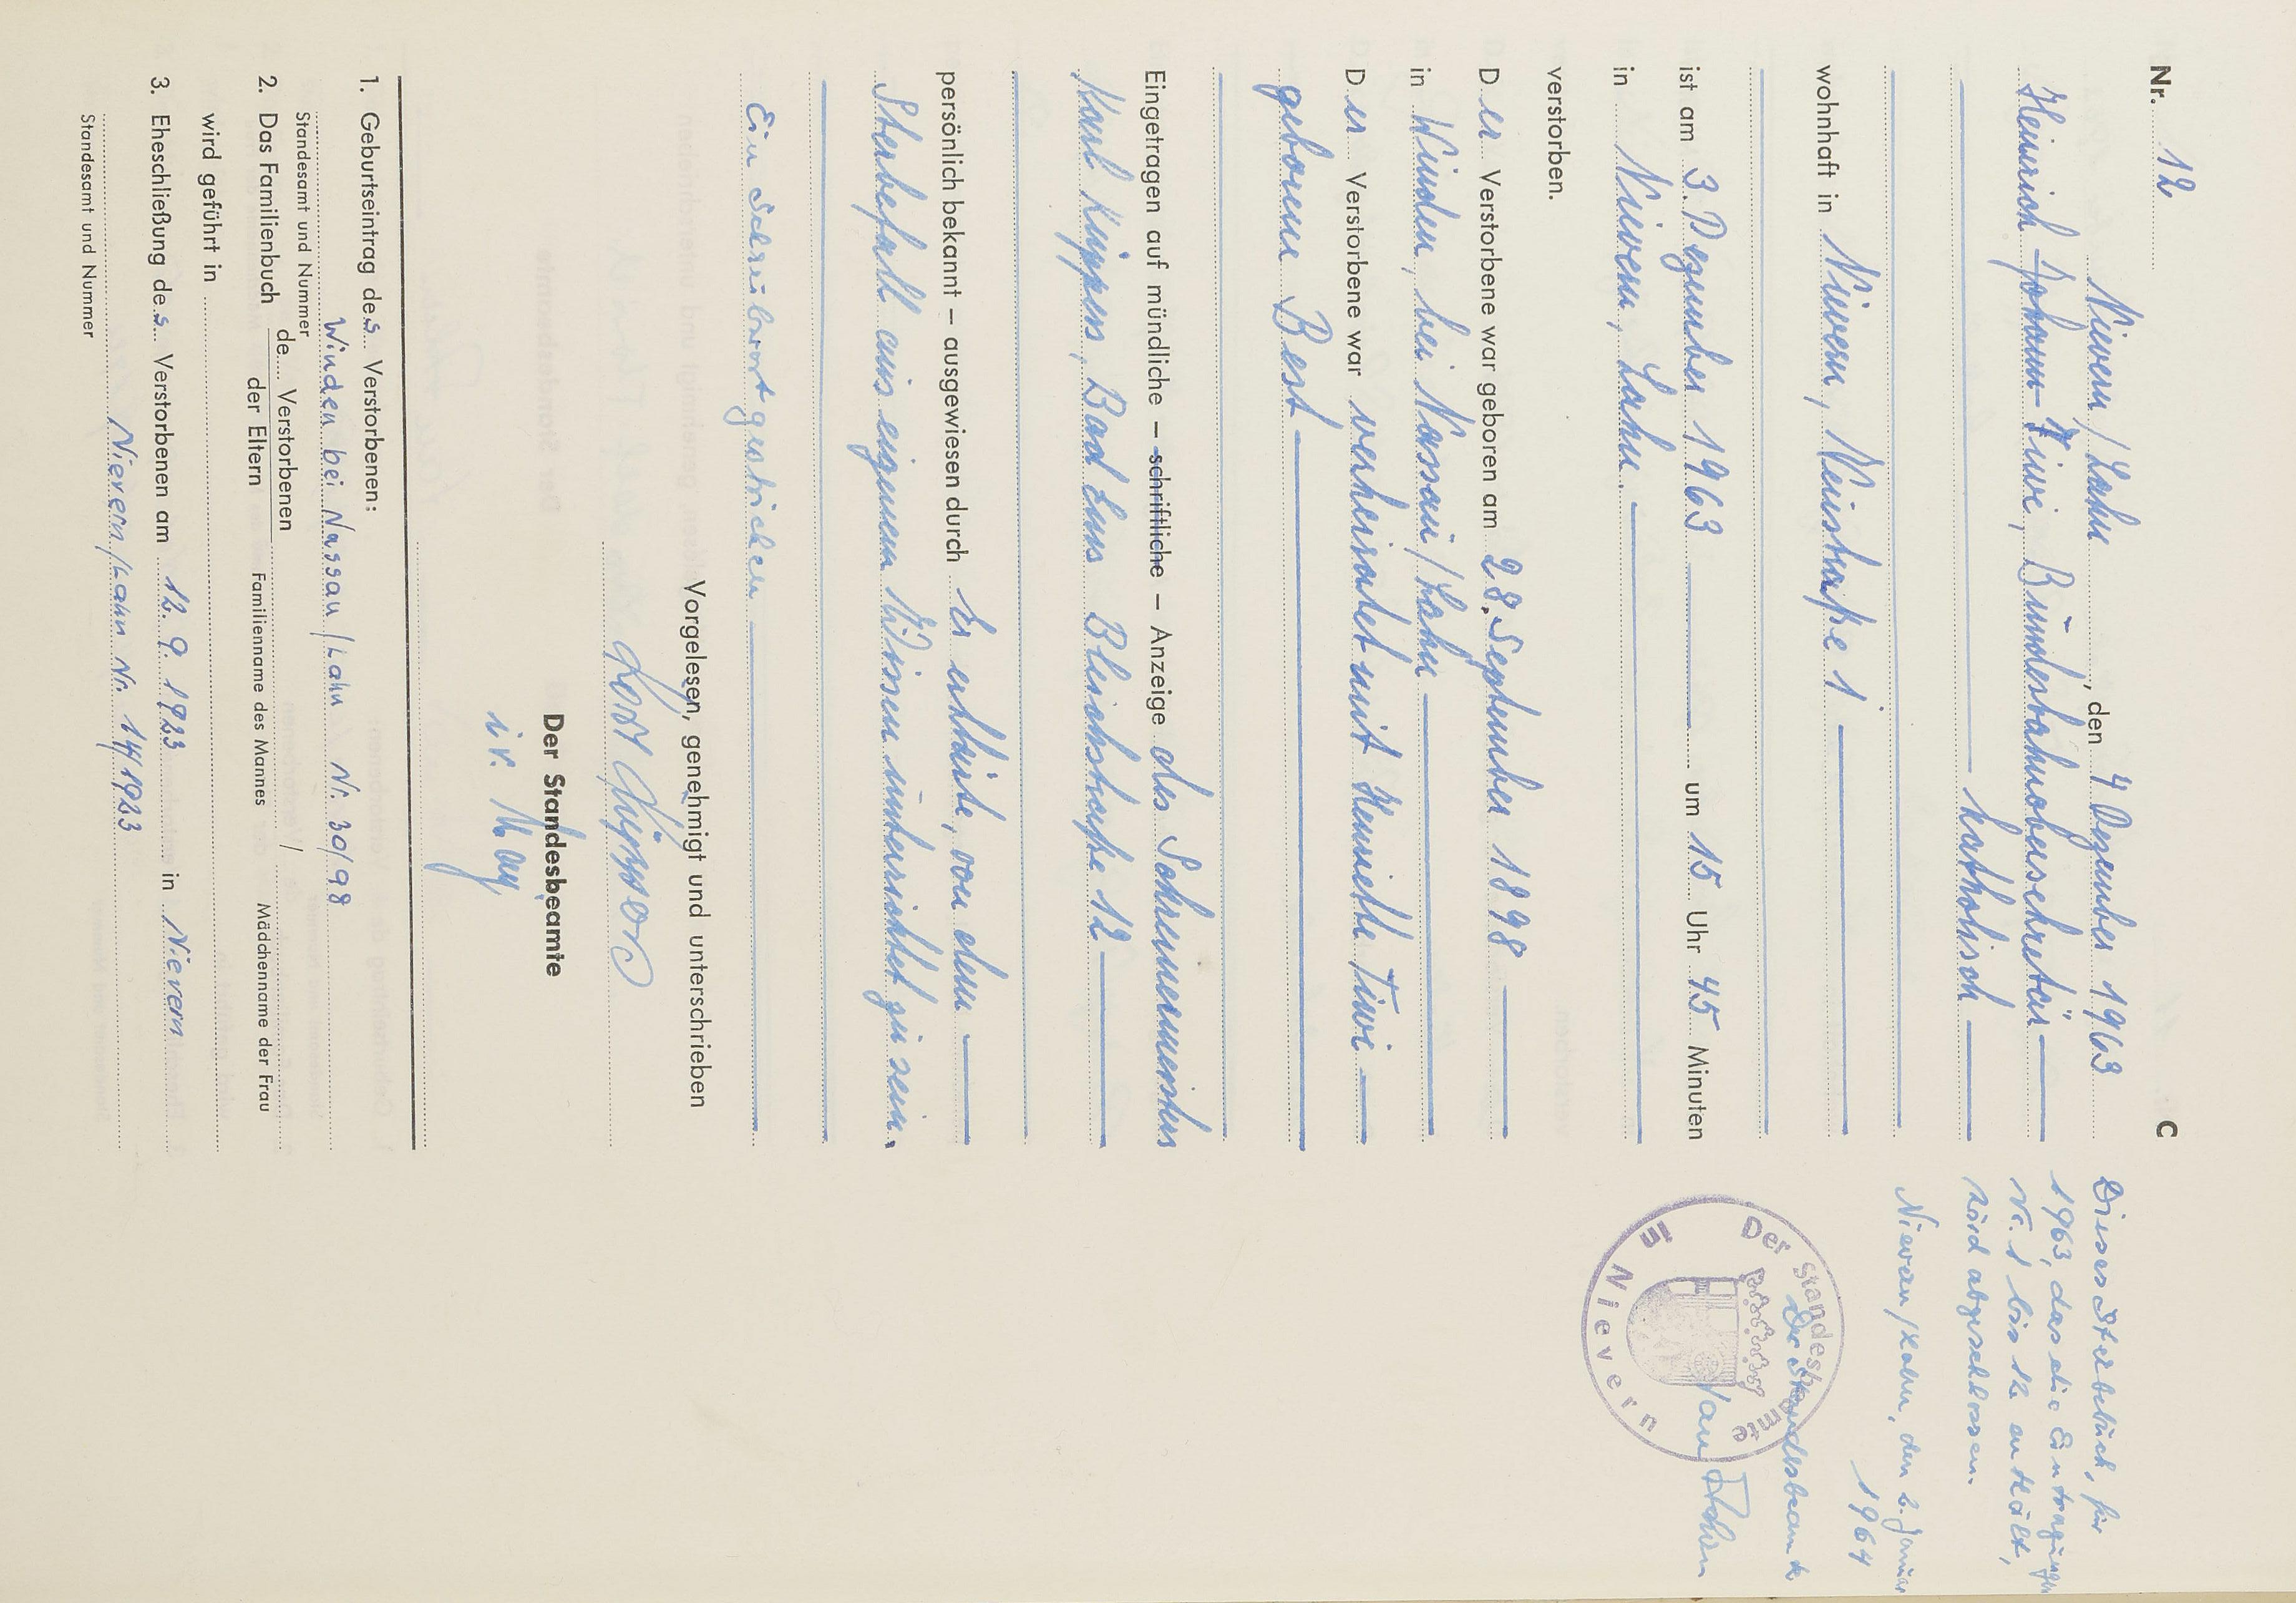 Nr. 12 C
Nievern/Lahn, den 4 Dezember 1963
Heinrich Johann Fiwi, Bundesbahnobersekretär
katholisch
wohnhaft in Nievern, Neustraße 1
ist am 3. Dezember 1963 um 15 Uhr 45 Minuten
in Nievern, Lahn.
verstorben.
Der Verstorbene war geboren am 28. September 1898
in Winden, bei Nassau/Lahn
Der Verstorbene war verheiratet mit Henriette Fiwi
geborene Best
Eingetragen auf mündliche – schriftliche – Anzeige des Schreinermeisters
Karl Küppers, Bad Ems Bleichstraße 12
persönlich bekannt – ausgewiesen durch Er erklärte, von dem
Sterbefall aus eigenem Wissen unterrichtet zu sein.
Ein Schreibwort gestrichen
Vorgelesen, genehmigt und unterschrieben
Der Standesbeamte
i.V. May
1. Geburtseintrag des Verstorbenen:
Winden bei Nassau/Lahn Nr. 30/98
Standesamt und Nummer
2. Das Familienbuch de Verstorbenen der Eltern
Familienname des Mannes / Mädchenname der Frau
wird geführt in
3. Eheschließung des Verstorbenen am 12. 9. 1923 in Nievern
Nievern/Lahn Nr. 14/1923
Standesamt und Nummer
Dieses Sterbebuch, für
1963, das die Eintragungen
Nr. 1 bis 12 enthält,
wird abgeschlossen.
Nievern/Lahn, den 2. Januar
1964
Der Standesbeamte
Der Standesbeamte
in Nievern